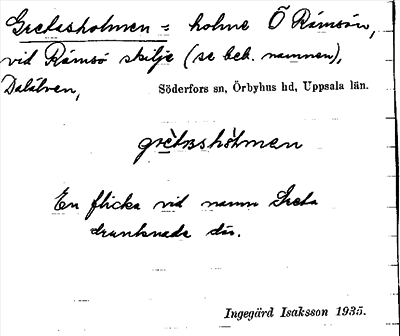 Gretasholmen = holme Ö Rámsön,
vid Rámsö skilje (se bet. namnen),
Dalälven, Söderfors sn, Örbyhus hd, Uppsala län.
grètashòlmen
En flicka vid namn Greta
drunknade där.
Ingegärd Isaksson 1935.